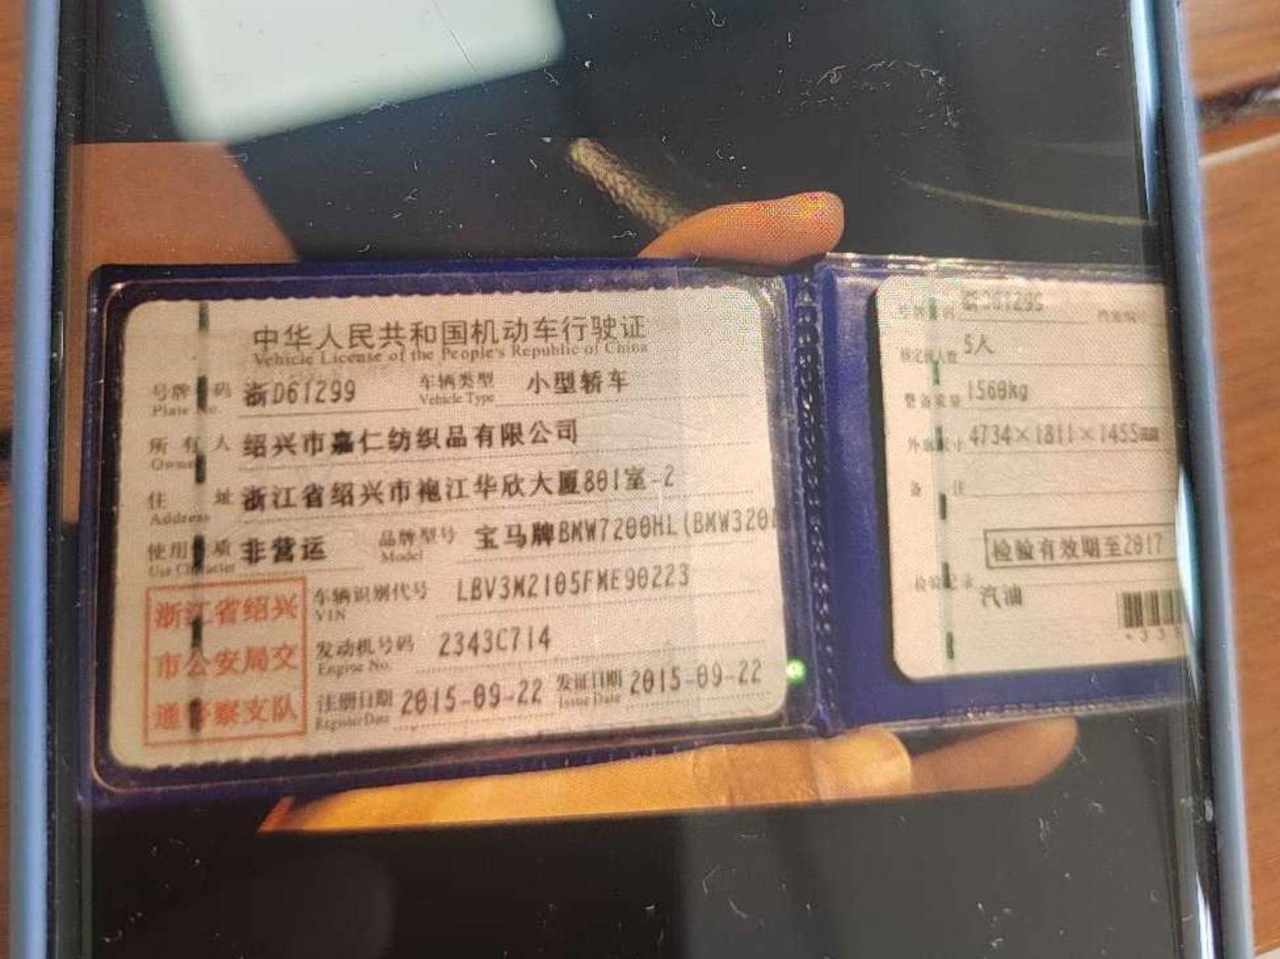 中华人民共和国机动车行驶证
Vehicle License of the People's Republic of China
号牌号码 浙D61299 车辆类型 小型轿车
Plate No. Vehicle Type
所有人 绍兴市嘉仁纺织品有限公司
Owner
住址 浙江省绍兴市袍江华欣大厦801室-2
Address
使用性质 非营运 品牌型号 宝马牌BMW7200HL(BMW320
Use Character Model
浙江省绍兴
市公安局交
通警察支队
车辆识别代号 LBV3M2105FME90223
VIN
发动机号码 2343C714
Engine No.
注册日期 2015-09-22 发证日期 2015-09-22
Register Date Issue Date
号牌号码 浙D61299
核定载人数 5人
整备质量 1560kg
外廓尺寸 4734×1811×1455mm
备注
检验有效期至2017
检验记录
汽油